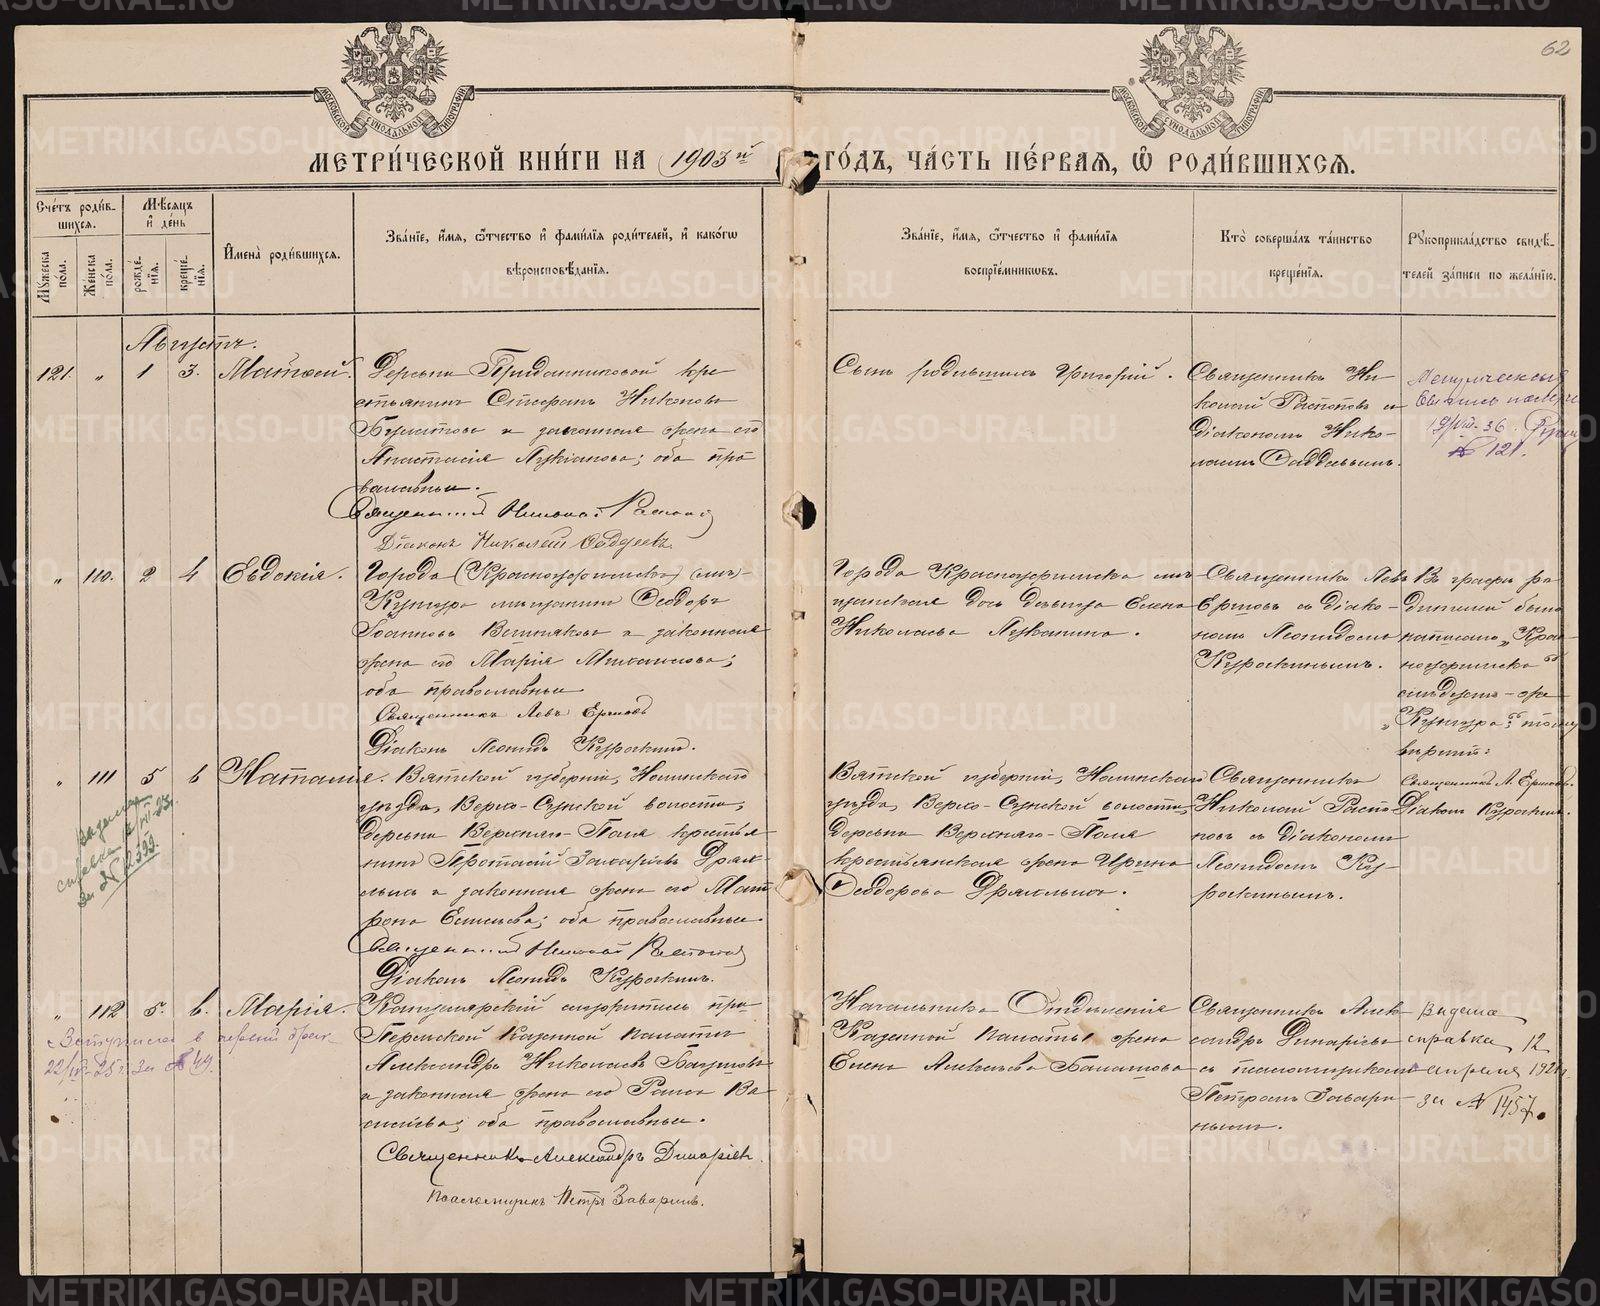 62
МОСКОВСКОЙ СѴНОДАЛЬНОЙ ТИПОГРАФІИ
МОСКОВСКОЙ СѴНОДАЛЬНОЙ ТИПОГРАФІИ
МЕТРИ́ЧЕСКОЙ КНИ́ГИ НА 1903й ГО́ДЪ, ЧА́СТЬ ПЕ́РВАЯ, Ѡ РОДИ́ВШИХСЯ.
Сче́тъ роди́в-
шихся.
Мѣ́сяцъ
и҆ де́нь
Му́жеска
пола.
Же́нска
по́ла.
рожде́-
нїя.
креще́-
нїя.
И҆мена̀ роди́вшихся.
Зва́нїе, и҆́мя, ѻ҆́тчество и҆ фами́лїя роди́телей, и҆ како́гѡ
вѣроисповѣ́данїя.
Зва́нїе, и҆́мя, ѻ҆́тчество и҆ фами́лїя
воспрїе́мниковъ.
Кто̀ соверша́лъ та́инство
креще́нїя.
Рукоприкла́дство свидѣ́-
телей за́писи по жела́нїю.
Августъ.
121. „ 1 3. Матѳей.
Деревни Приданниковой кре
стьянинъ Стефанъ Никоновъ
и законная жена его
Анастасія Лукіанова; оба пра
вославные.
Священникъ Николай
Діаконъ Николай
Сынъ родившихъ Григорій.
Священникъ Ни
колай Распоповъ съ
діакономъ Нико-
лаемъ
№ 121.
„ 110. 2 4 Евдокія.
Города (Красноуфимска) (съ)-
Кунгура мѣщанинъ Ѳеодоръ
Іоанновъ Вешняковъ и законная
жена его Марія Михаилова;
оба православные
Священникъ Левъ Ершовъ
Діаконъ Леонидъ Куроскинъ.
Города Красноуфимска мѣ-
щанская дочь дѣвица Елена
Николаева Лузанина.
Священникъ Левъ
Ершовъ съ діако-
номъ Леонидомъ
Куроскинымъ.
Въ графѣ ро
дителей было
написано „Крас-
ноуфимска"
слѣдуетъ-же
„Кунгура" тому
вѣрить:
Священникъ Л. Ершовъ.
Діаконъ Куроскинъ.
„ 111 5 6 Наталія.
Вятской губерніи, Нолинскаго
уѣзда, Верхо-Сунской волости,
деревни Верхняго-Поля крестья
нинъ Протасій Захаріевъ Дрях-
лыхъ и законная жена его Мат
рона Елисеева; оба православные.
Священникъ Николай
Діаконъ Леонидъ Куроскинъ.
Вятской губерніи, Нолинскаго
уѣзда, Верхо-Сунской волости,
деревни Верхняго-Поля
крестьянская жена Ирина
Ѳеодорова Дряхлыхъ.
Священникъ
Николай Распо
повъ съ діакономъ
Леонидомъ Ку-
роскинымъ.
Выдана
справка
за № 2399.
„ 112 5. 6. Марія.
Канцелярскій служитель при
Пермской Казенной Палатѣ
Александръ Николаевъ
и законная жена его Раиса Ва
сильева; оба православные.
Священникъ Александръ Динаріевъ.
Псаломщикъ Петръ Заваринъ.
Начальника Отдѣленія
Казенной Палаты жена
Елена Алексѣева
Священникъ Алек
сандръ Динаріевъ
съ псаломщикомъ
Петромъ Завари
нымъ.
Выдана
справка 12
апреля
за № 1457.
Вступила в первый брак
22/ -25 г. за № 49.
METRIKI.GASO-URAL.RU